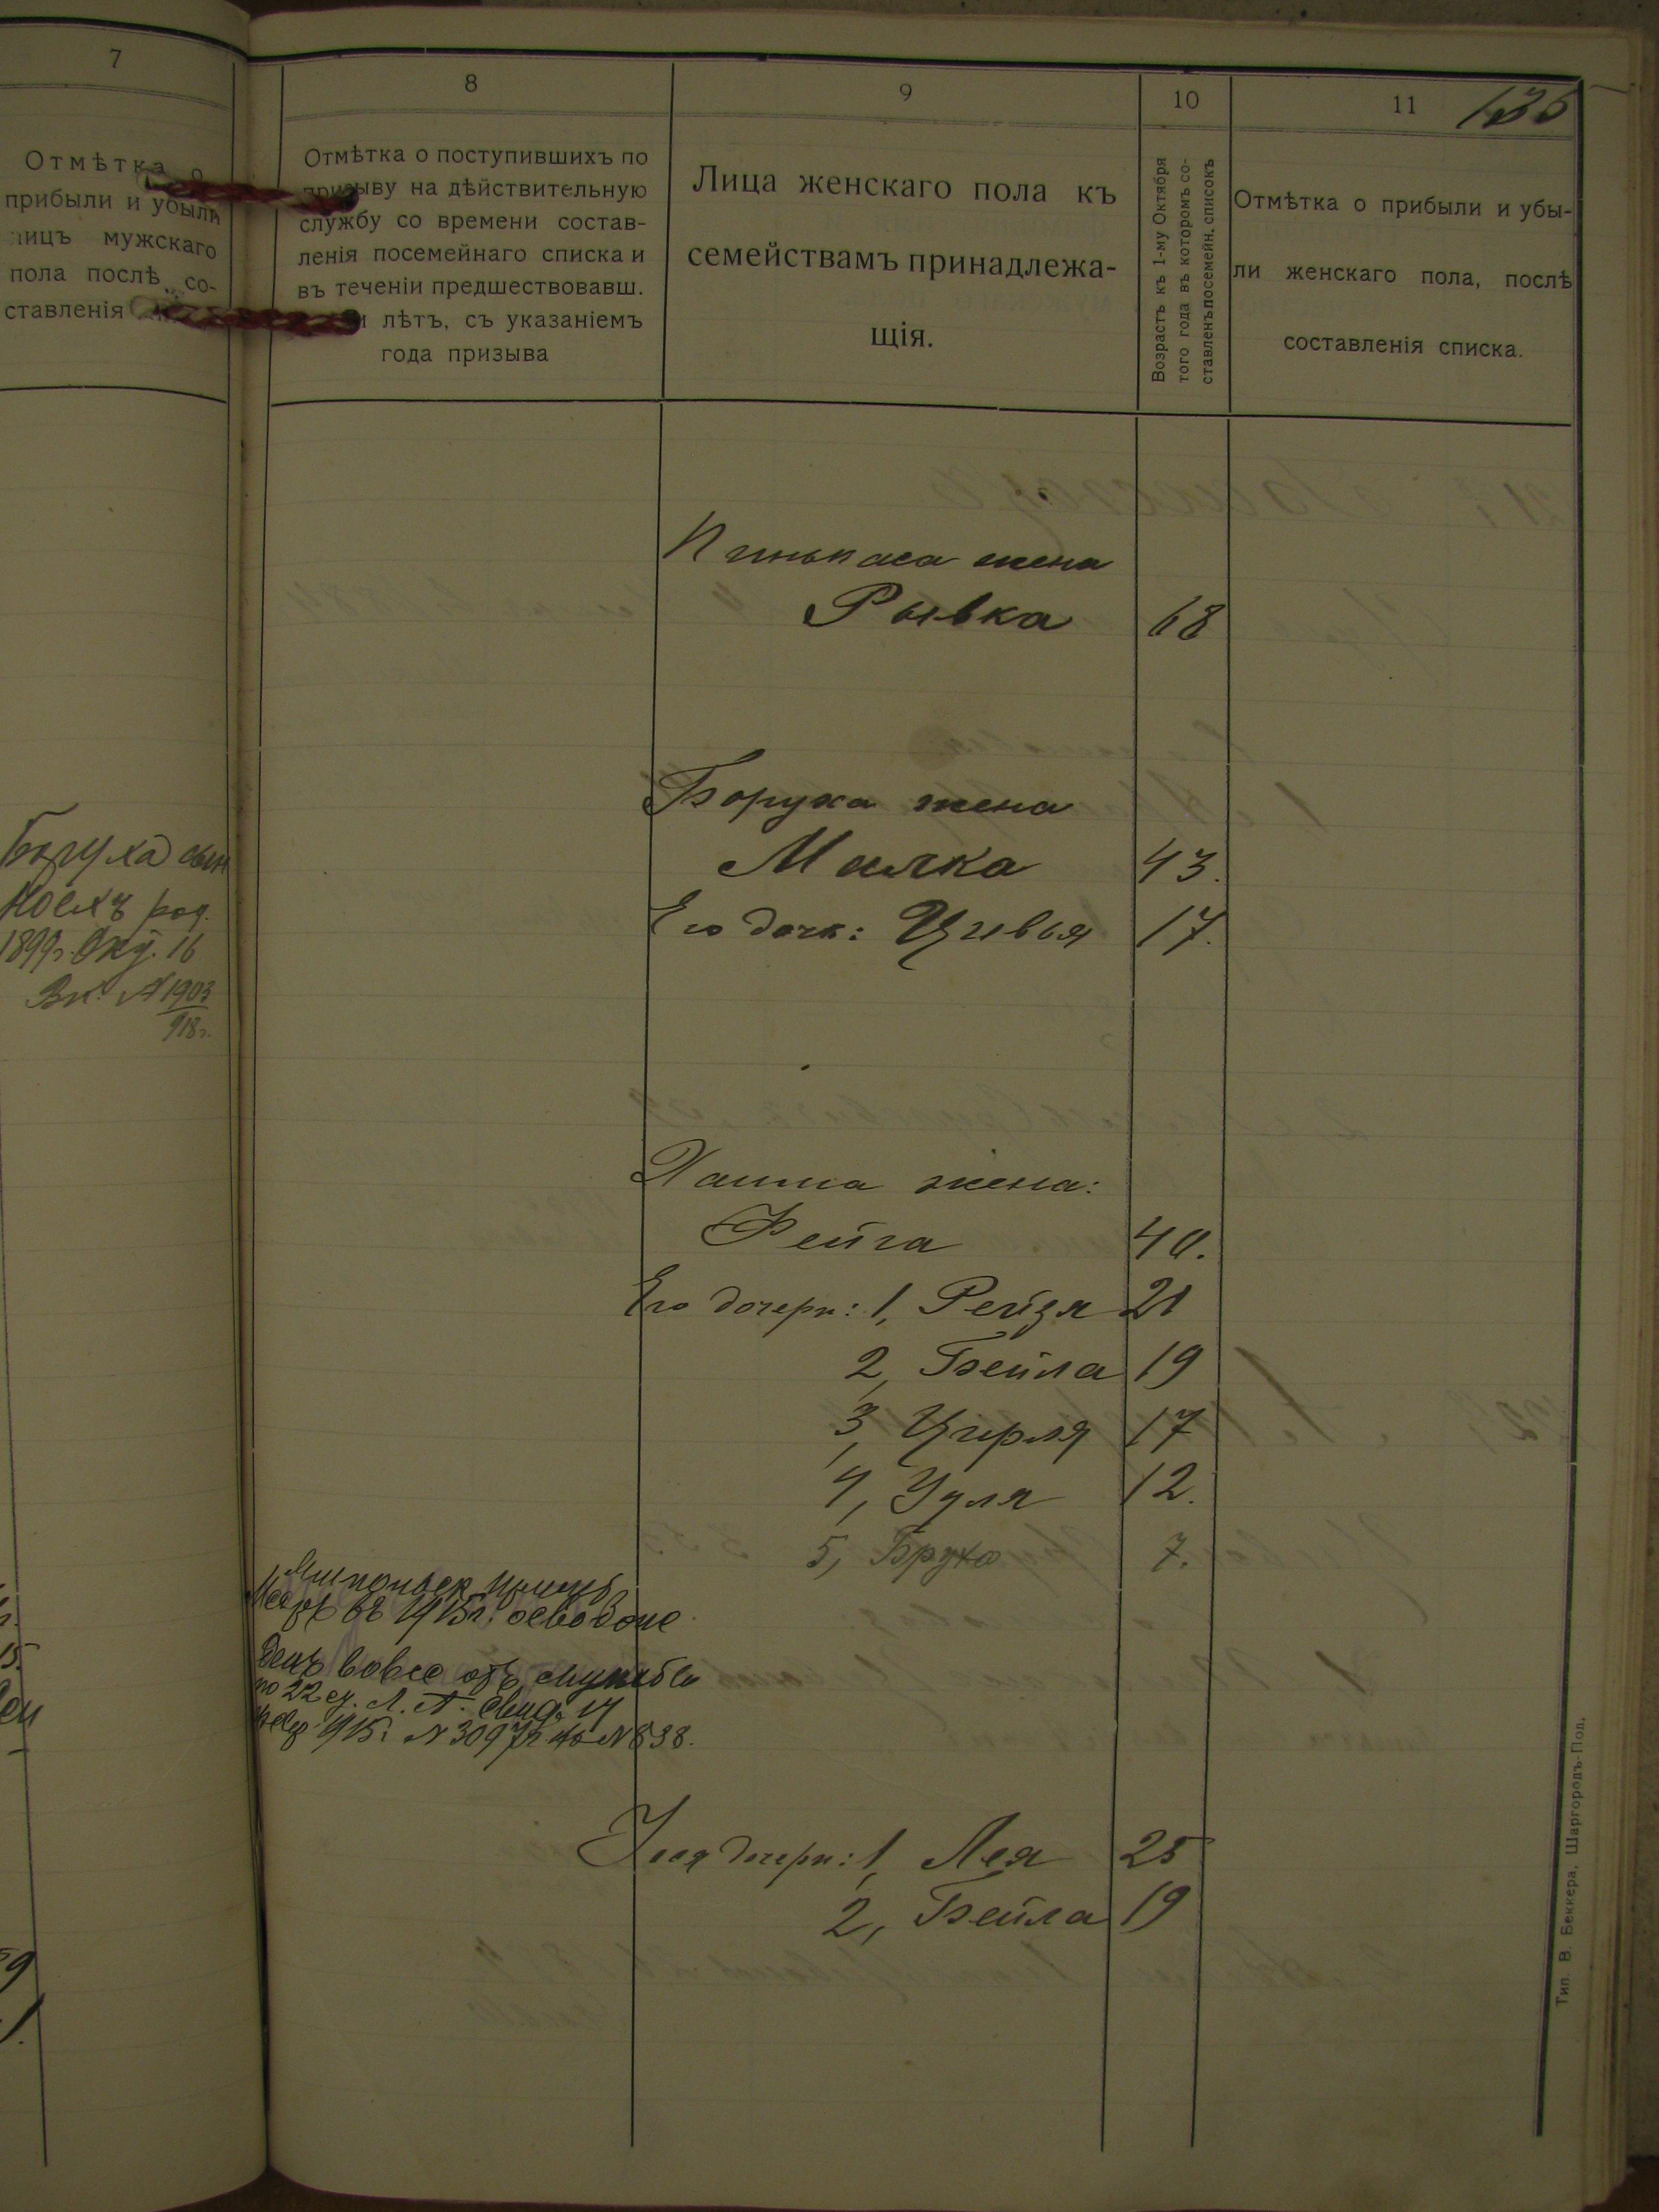 7
Отмѣтка о
прибыли и убыли
лицъ мужскаго
пола послѣ со-
ставленія
Боруха сын
Мосях род.
1899 г. Окт. 16
Вк. № 1903
918 г.
8
Отмѣтка о поступившихъ по
призыву на дѣйствительную
службу со времени состав-
ленія посемейнаго списка и
въ теченіи предшествовавш.
лѣтъ, съ указаніемъ
года призыва
въ 1915 г. освобож
денъ вовсе отъ службы
по 22 ст. Л. А. свид. 14
1915 г. № 3097 № 838.
9
Лица женскаго пола къ
семействамъ принадлежа-
щія.
10
Возрастъ къ 1-му Октября
того года въ которомъ со-
ставленъ посемейн. списокъ
11
135
Отмѣтка о прибыли и убы-
ли женскаго пола, послѣ
составленія списка.
Пинькаса жена
Рывка 68
Боруха жена
Малка 43.
Его дочь: Цивья 17.
Хаима жена:
Фейга 40.
Его дочери: 1, Рейзя 21
2, Бейла 19
3, Цирля 17
4, Удля 12.
5, Бруха 7.
дочери: 1, Лея 25
2, Бейла 19
Тип. В. Беккера, Шаргородъ-Под.